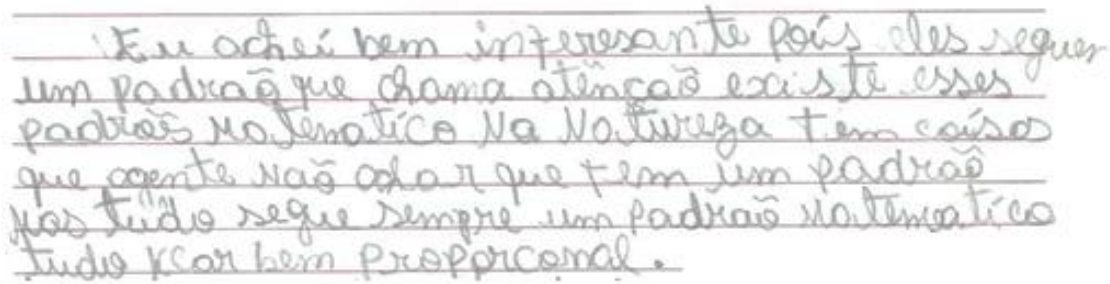 Eu achei bem interesante pois eles segues
um padraõ que chama atencaõ existe esses
padroẽs Matematico Na Natureza tem coisas
que agente Naõ achar que tem um padraõ
Mas tudo segue sempre um padraõ Matematico
tudo bem proporconal.